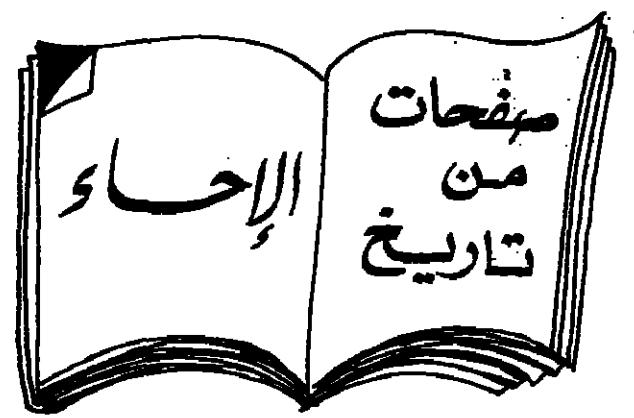 صفحات
من
تاريخ
الإحساء